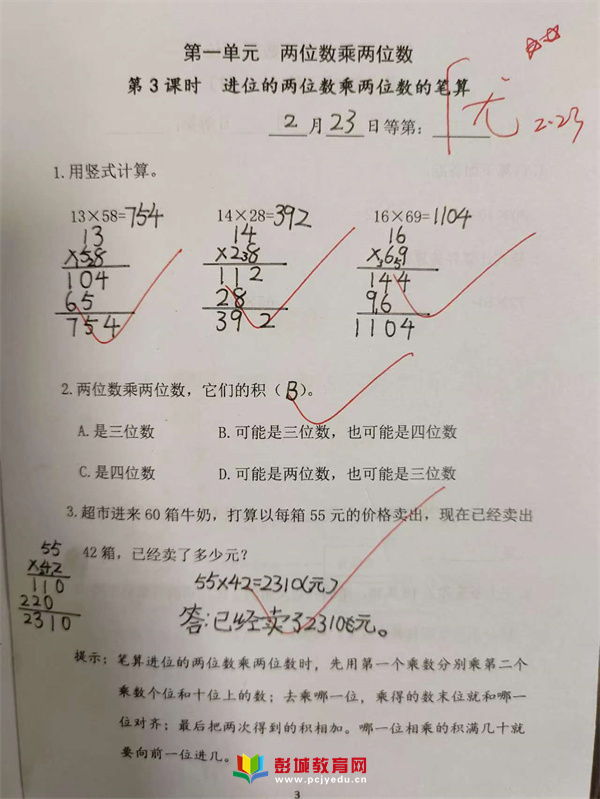 第一单元 两位数乘两位数
第3课时 进位的两位数乘两位数的笔算
2月23日等第:
2.23
1.用竖式计算。
13×58=754 14×28=392 16×69=1104
13 14 16
×58 ×28 ×69
104 112 144
65 28 96
754 392 1104
2.两位数乘两位数,它们的积(B)。
A.是三位数 B.可能是三位数,也可能是四位数
C.是四位数 D.可能是两位数,也可能是三位数
3.超市进来60箱牛奶,打算以每箱55元的价格卖出,现在已经卖出
42箱,已经卖了多少元?
55
×42
110
220
2310
55×42=2310(元)
答:已经卖了2310元。
提示:笔算进位的两位数乘两位数时,先用第一个乘数分别乘第二个
乘数个位和十位上的数;去乘哪一位,乘得的数末位就和哪一
位对齐;最后把两次得到的积相加。哪一位相乘的积满几十就
要向前一位进几。
彭城教育网
www.pcjyedu.cn
3